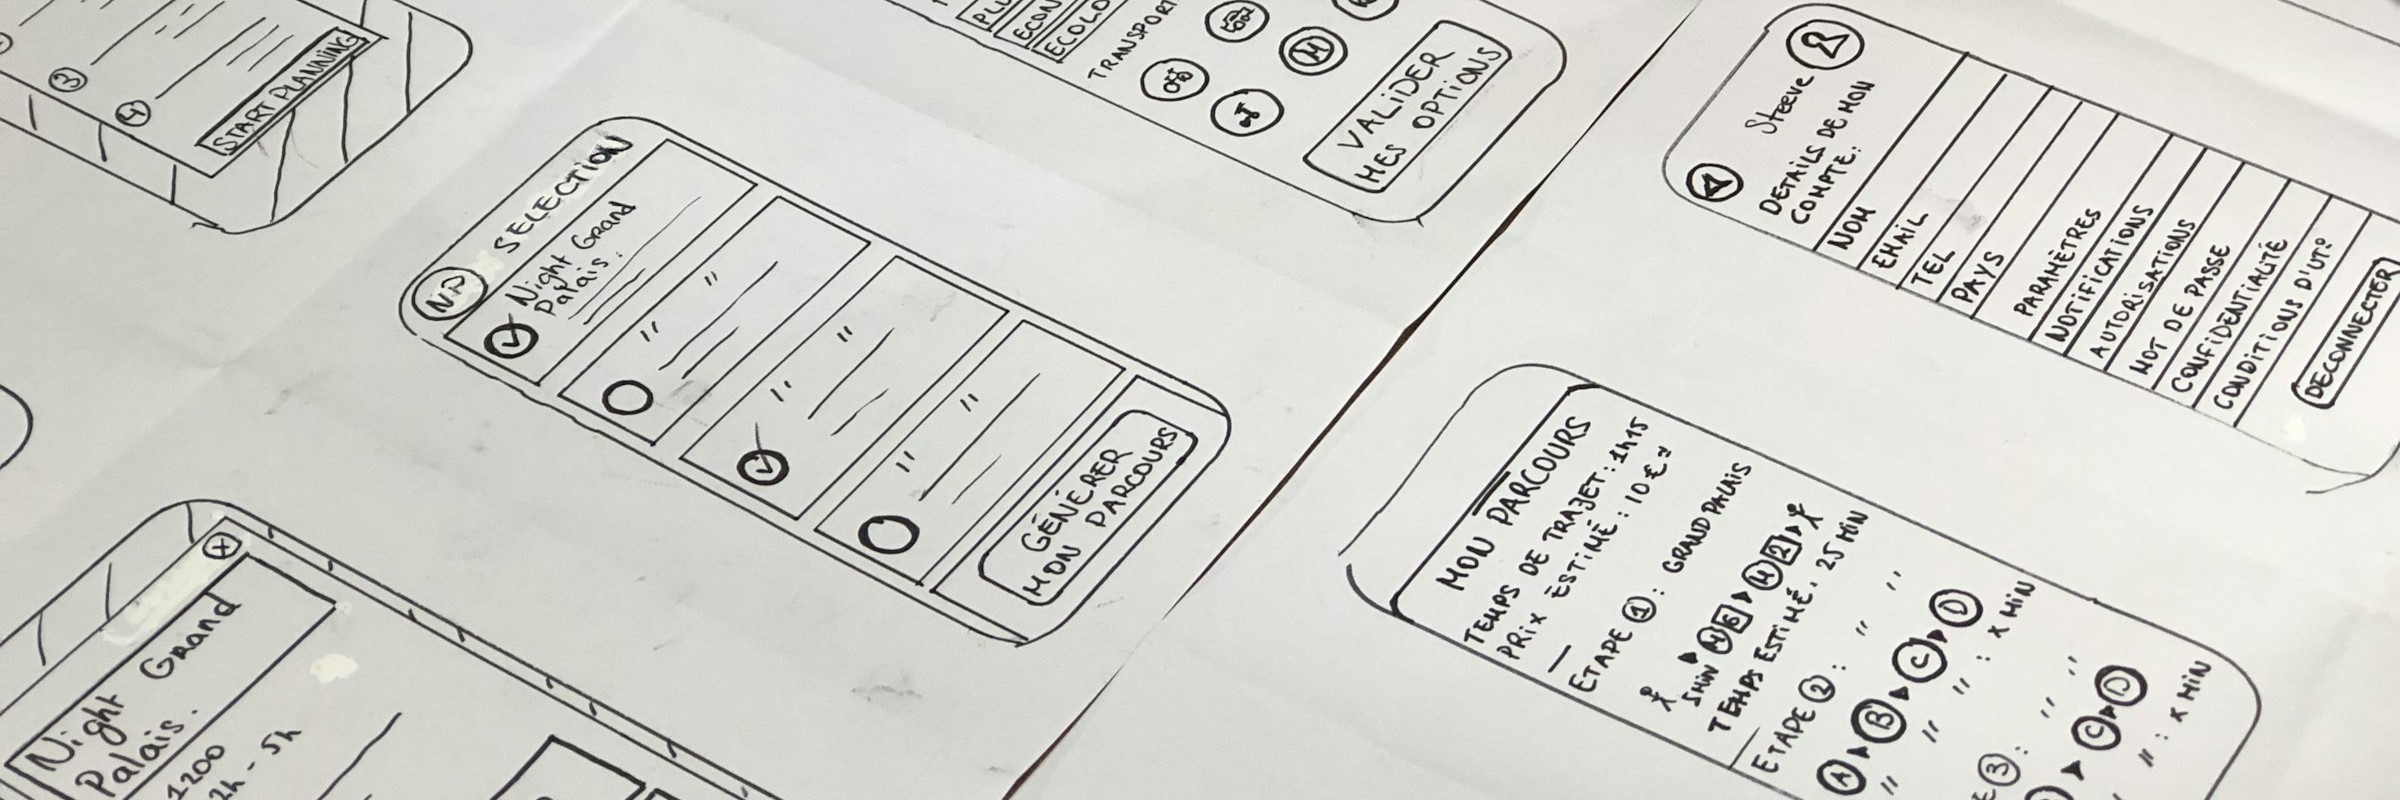 3
4
START PLANNING
N.P
SELECTION
Night Grand
Palais.
"
"
"
"
"
"
GÉNÉRER
MON PARCOURS
ECOLO
TRANSPORT
M
VALIDER
MES OPTIONS
Steeve
DETAILS DE MON
COMPTE:
NOM
EMAIL
TEL
PAYS
PARAMÈTRES
NOTIFICATIONS
AUTORISATIONS
MOT DE PASSE
CONFIDENTIALITÉ
CONDITIONS D'UTO
DECONNECTER
Night Grand
Palais.
1200
2h - 5h
MON PARCOURS
TEMPS DE TRAJET: 1h15
PRIX ESTIMÉ: 10€
ETAPE 1: GRAND PALAIS
5MIN M 6 M 2
TEMPS ESTIMÉ: 25 MIN
ETAPE 2: " "
A B C D
" " ": X MIN
3: " "
C D
": X MIN